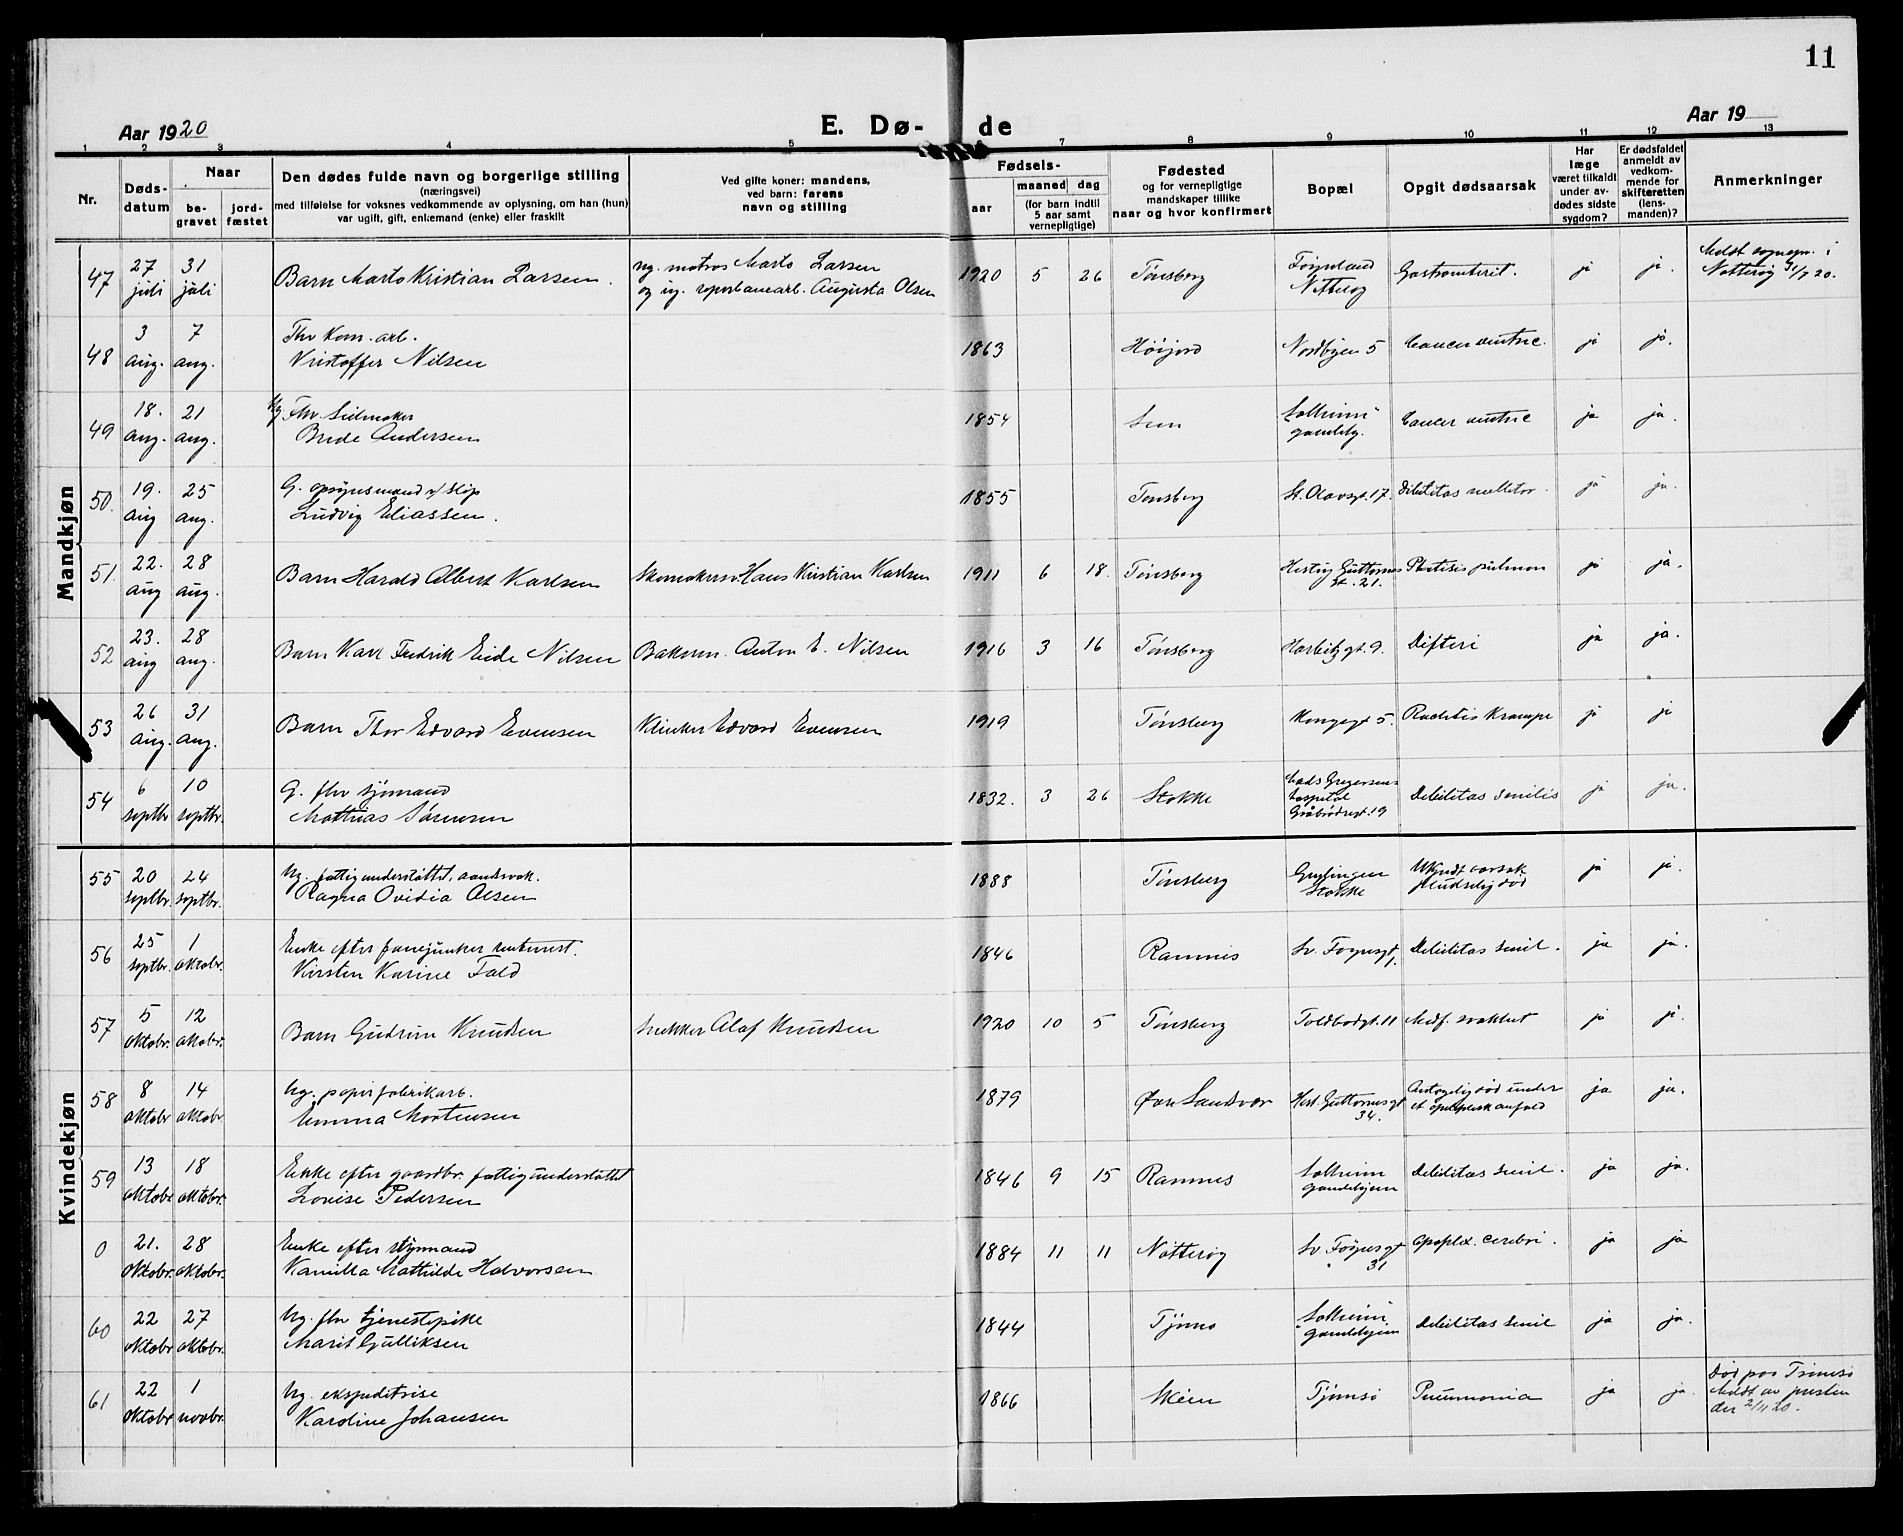 11
Aar 1920
E. Dø-
de
Aar 19
1 2 3 4 5 7 8 9 10 11 12 13
Nr.
Døds-
datum
Naar
be-
gravet
jord-
fæstet
Den dødes fulde navn og borgerlige stilling
(næringsvei)
med tilføielse for voksnes vedkommende av oplysning, om han (hun)
var ugift, gift, enkemand (enke) eller fraskilt
Ved gifte koner: mandens,
ved barn: farens
navn og stilling
Fødsels-
aar
maaned
dag
(for barn indtil
5 aar samt
vernepligtige)
Fødested
og for vernepligtige
mandskaper tillike
naar og hvor konfirmert
Bopæl
Opgit dødsaarsak
Har
læge
været tilkaldt
under av-
dødes sidste
sygdom?
Er dødsfaldet
anmeldt av
vedkom-
mende for
skifteretten
(lens-
manden)?
Anmerkninger
Mandkjøn
47 27 juli 31 juli Barn Marto Kristian Larsen. ug. matros Marto Larsen
og ug. arb. Augusta Olsen 1920 5 26 Tønsberg Nøtterøy Gastroenterit. ja ja. Meldt sognepr. i
Nøtterøy 31/7 20.
48 3 aug. 7 aug. Fhv. kom. arb.
Kristoffer Nilsen 1863 Høijord Nordbyen 5 Cancer ventric. ja ja.
49 18. aug. 21 aug. Ug. Fhv. Seilmaker
Brede Andersen 1854 Sem Solheim
gamleby. Cancer ventric ja ja.
50. 19. aug 25 aug. G. opsynsmand v/ Slop
Ludvig Eliassen. 1855 Tønsberg St. Olavsgt. 17. Debilitas ja ja.
51. 22. aug 28 aug. Barn Harald Albert Karlsen Skomakersv. Hans Kristian Karlsen 1911 6 18. Tønsberg Hertug Guttorms
gt. 21. Phtisis pulmon ja ja.
52 23. aug 28 aug. Barn Karl Fredrik Eide Nilsen Bakerm. Anton E. Nilsen 1916 3 16 Tønsberg Harbitzgt. 9. Difteri ja ja.
53 26 aug. 31 aug. Barn Thor Edvard Evensen Klinker Edvard Evensen 1919 Tønsberg Kongegt 5. Rachitis Krampe ja ja
54 6 septbr. 10 septbr. G. fhv sjømand
Mathias Sørensen 1832. 3 26 Stokke Mads Gregersens
hospital
Gråbrødregt. 19 Debilitas senilis ja ja.
Kvindekjøn
55 20 septbr. 24 septbr. Ug. fattigunderstøttet, aandsvak.
Ragna Ovidia Olsen 1888 Tønsberg Stokke Ukjendt aarsak
Pludselig død ja ja.
56 25 septbr. 1 oktobr. Enke efter fanejunker
Kirsten Karine Fald 1846 Ramnes Sv. Foynsgt. Debilitas senil. ja ja.
57 5 oktobr. 12 oktobr. Barn Gudrun Knudsen Snekker Olaf Knudsen 1920 10 5 Tønsberg Toldbodgt. 11 Medf. svakhet ja ja.
58 8 oktobr 14 oktobr. Ug. papirfabrikarb.
Emma Mortensen 1879 Øvre Sandsvær Hert. Guttormsgt
34. Antagelig død under
et apoplektisk anfald ja ja.
59 13 oktobr 18 oktobr. Enke efter gaardbr. fattigunderstøttet
Lovise Pedersen 1846 9 15 Ramnes Solheim
gamlehjem Debilitas senil. ja ja.
0 21. oktobr. 28 oktobr. Enke efter styrmand
Kamilla Mathilde Halvorsen 1884 11 11 Nøtterøy Sv. Foynsgt
31 Apoplex. cerebri. ja ja
60 22 oktobr 27 oktobr. Ug. fhv tjenestepike
Marit Gulliksen 1844 Tjømø Solheim
gamlehjem Debilitas senil ja ja.
61 22 oktobr 1 novbr. Ug. ekspeditrise
Karoline Johansen 1866 Skien Tjømø Pneumonia ja ja. Død paa Tjømø
Meldt av presten
der 2/11 20.